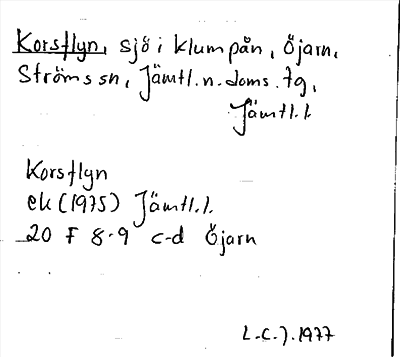 Korsflyn, sjö i klumpån, Öjarn,
Ströms sn, Jämtl. n. doms. tg,
Jämtl. l.
Korsflyn
ek (1975) Jämtl. l.
20 F 8-9 c-d Öjarn
L.C.J. 1977